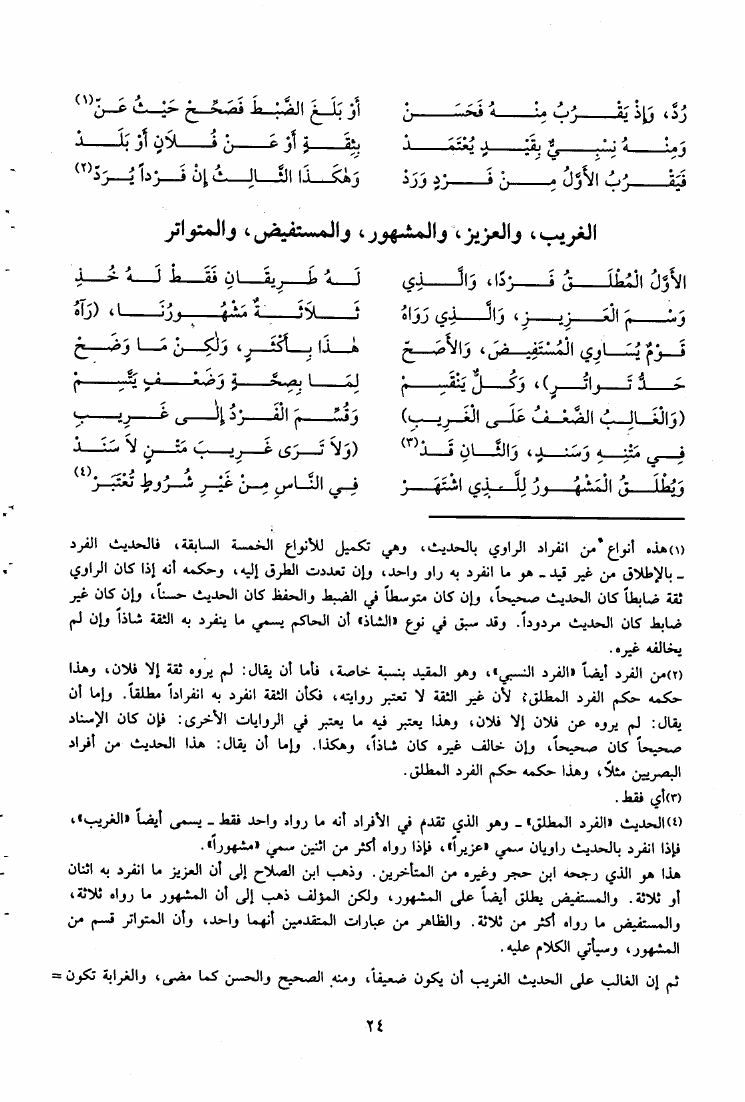 رُدَّ، وَإِذْ يَقْرُبُ مِنْهُ فَحَسَنْ أَوْ بَلَغَ الضَّبْطَ فَصَحِّحْ حَيْثُ عَنّْ(١)
وَمِنْهُ نِسْبِيٌّ بِقَيْدٍ يُعْتَمَدْ بِثِقَةٍ أَوْ عَنْ فُلَانٍ أَوْ بَلَدْ
فَيَقْرُبُ الأَوَّلُ مِنْ فَرْدٍ وَرَدْ وَهٰكَذَا الثَّالِثُ إِنْ فَرْداً يُرَدّْ(٢)
الغريب، والعزيز، والمشهور، والمستفيض، والمتواتر
الأَوَّلُ المُطْلَقُ فَرْدًا، وَالَّذِي لَهُ طَرِيقَانِ فَقَطْ لَهُ خُذِ
وَسْمَ العَزِيزِ، وَالَّذِي رَوَاهُ ثَلَاثَةٌ مَشْهُورُنَا، (رَآهُ
قَوْمٌ يُسَاوِي المُسْتَفِيضَ، وَالأَصَحّْ هٰذَا بِأَكْثَرٍ، وَلٰكِنْ مَا وَضَحْ
حَدُّ تَوَاتُرٍ)، وَكُلٌّ يَنْقَسِمْ لِمَا بِصِحَّةٍ وَضَعْفٍ يَتَّسِمْ
(وَالْغَالِبُ الضَّعْفُ عَلَى الْغَرِيبِ) وَقُسِّمَ الْفَرْدُ إِلَى غَرِيبِ
فِي مَتْنِهِ وَسَنَدٍ، وَالثَّانِ قَدْ(٣) (وَلاَ تَرَى غَرِيبَ مَتْنٍ لاَ سَنَدْ
وَيُطْلَقُ المَشْهُورُ لِلَّذِي اشْتَهَرْ فِي النَّاسِ مِنْ غَيْرِ شُرُوطٍ تُعْتَبَرْ(٤)
(١)هذه أنواع من انفراد الراوي بالحديث، وهي تكميل للأنواع الخمسة السابقة، فالحديث الفرد
ـ بالإطلاق من غير قيد ـ هو ما انفرد به راو واحد، وإن تعددت الطرق إليه، وحكمه أنه إذا كان الراوي
ثقة ضابطاً كان الحديث صحيحاً، وإن كان متوسطاً في الضبط والحفظ كان الحديث حسناً، وإن كان غير
ضابط كان الحديث مردوداً. وقد سبق في نوع «الشاذ» أن الحاكم يسمي ما ينفرد به الثقة شاذاً وإن لم
يخالفه غيره.
(٢)من الفرد أيضاً «الفرد النسبي»، وهو المقيد بنسبة خاصة، فأما أن يقال: لم يروه ثقة إلا فلان، وهذا
حكمه حكم الفرد المطلق؛ لأن غير الثقة لا تعتبر روايته، فكأن الثقة انفرد به انفراداً مطلقاً. وإما أن
يقال: لم يروه عن فلان إلا فلان، وهذا يعتبر فيه ما يعتبر في الروايات الأخرى: فإن كان الإسناد
صحيحاً كان صحيحاً، وإن خالف غيره كان شاذاً، وهكذا. وإما أن يقال: هذا الحديث من أفراد
البصريين مثلاً، وهذا حكمه حكم الفرد المطلق.
(٣)أي فقط.
(٤)الحديث «الفرد المطلق» ـ وهو الذي تقدم في الأفراد أنه ما رواه واحد فقط ـ يسمى أيضاً «الغريب»،
فإذا انفرد بالحديث راويان سمي «عزيزاً»، فإذا رواه أكثر من اثنين سمي «مشهوراً».
هذا هو الذي رجحه ابن حجر وغيره من المتأخرين. وذهب ابن الصلاح إلى أن العزيز ما انفرد به اثنان
أو ثلاثة. والمستفيض يطلق أيضاً على المشهور، ولكن المؤلف ذهب إلى أن المشهور ما رواه ثلاثة،
والمستفيض ما رواه أكثر من ثلاثة. والظاهر من عبارات المتقدمين أنهما واحد، وأن المتواتر قسم من
المشهور، وسيأتي الكلام عليه.
ثم إن الغالب على الحديث الغريب أن يكون ضعيفاً، ومنه الصحيح والحسن كما مضى، والغرابة تكون =
٢٤